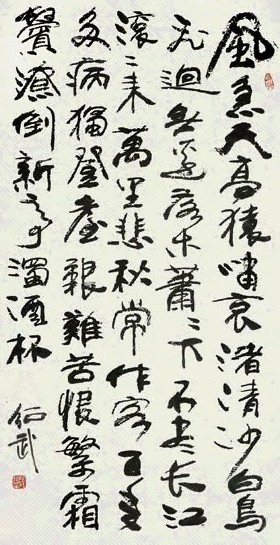 風急天高猿嘯哀渚清沙白鳥
飛迴無邊落木蕭〻下不盡長江
滾〻來萬里悲秋常作客百年
多病獨登臺艱難苦恨繁霜
鬢潦倒新亭濁酒杯
武